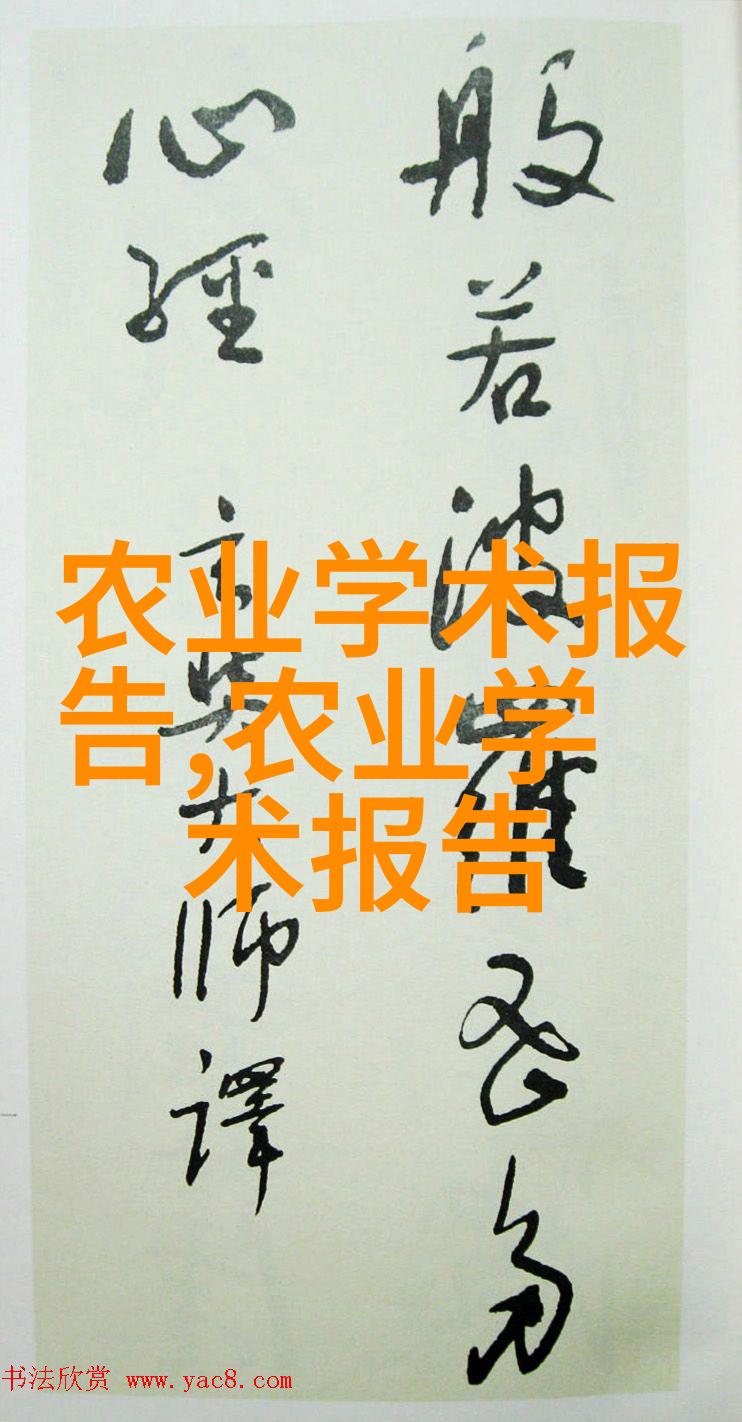 般若波羅蜜多
心經 玄奘大師譯
农业学术报
告,农业学
术报告
书法欣赏 www.yac8.com